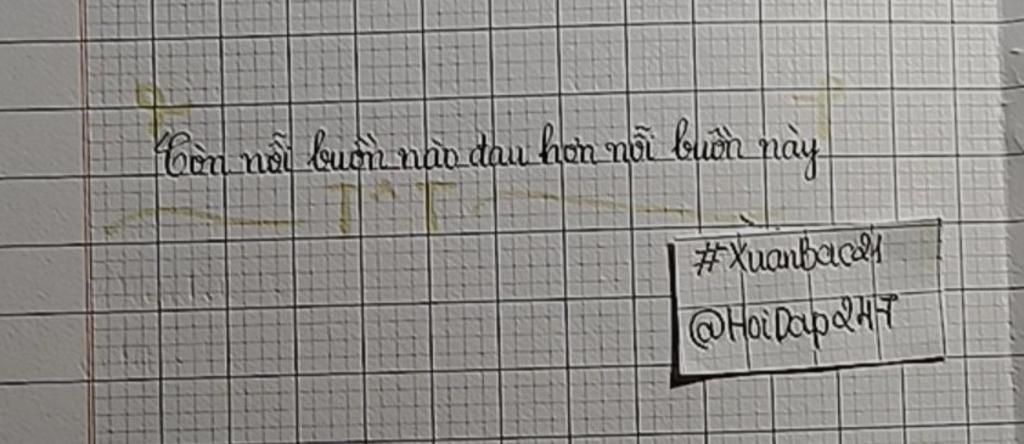 Còn nỗi buồn nào đau hơn nỗi buồn này
T^T
#XuanBac21
@HoiDap247